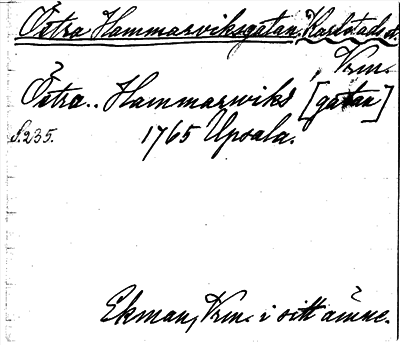 Östra Hammarviksgatan, Karlstads st.
Vrm.
Östra.. Hammarwiks [gatan]
S.235. 1765 Upsala.
Ekman, Vrm. i sitt ämne.